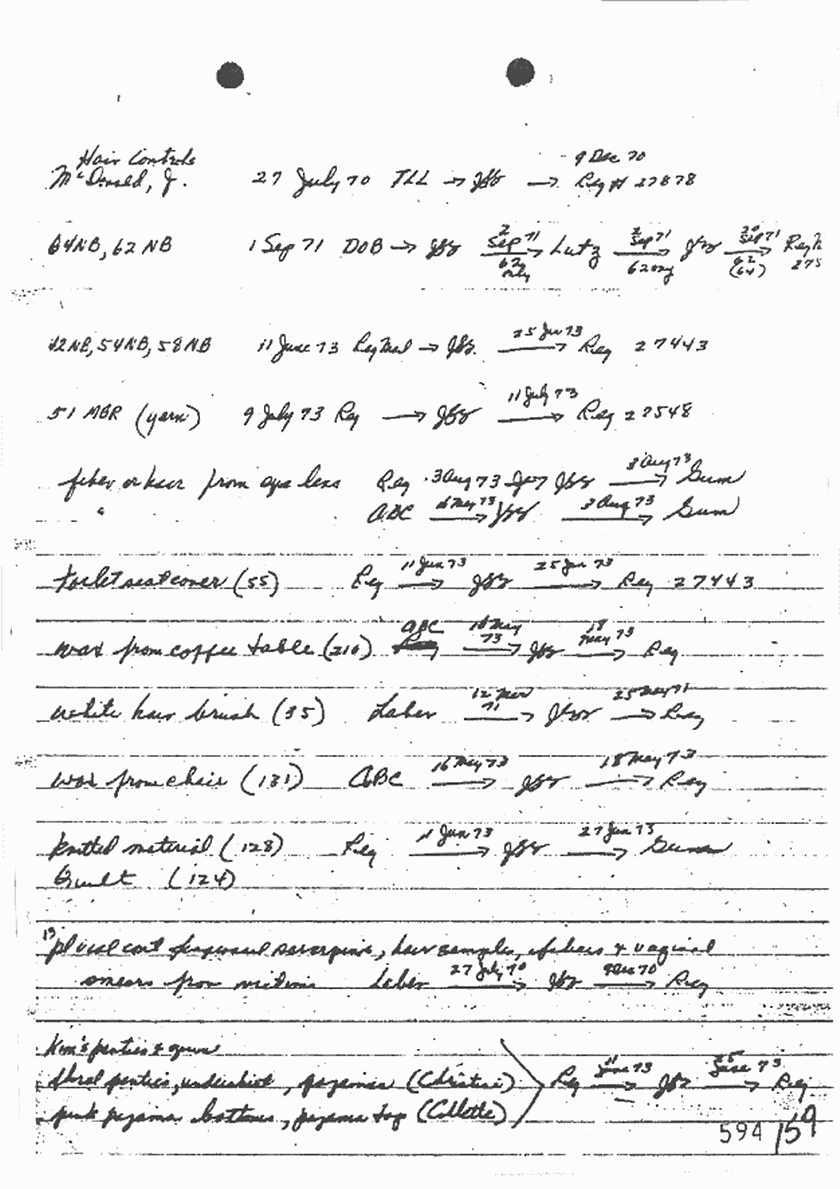 Hair Controls 9 Dec 70
McDonald, J. 27 July 70 TLL → → Reg # 27878
2 Sep 71 2 Sep 71 Sep 71
64NB, 62 NB 1 Sep 71 DOB → → Lutz → →
62 only 62 only 62 (64)
25 Jun 73
42NB, 54NB, 58NB 11 June 73 → → Reg 27443
11 July 73
51 MBR (yarn) 9 July 73 Reg → → Reg 27548
3 Aug 73
fiber or hair from eye lens Reg 3 Aug 73 → Gum
16 May 73 3 Aug 73
" ABC → → Gum
11 Jun 73 25 Jun 73
toilet seat cover (55) Reg → → Reg 27443
ABC 16 May 73 18 May 73
wax from coffee table (210) → → Reg
12 Mar 71 25 May 71
white hair brush (35) Laber → → Reg
16 May 73 18 May 73
wax from chair (131) ABC → → Reg
11 Jun 73 27 Jun 73
knitted material (128) Reg → →
Quilt (124)
13
fingernail scrapings, hair samples, & vaginal
27 July 70 9 Dec 70
smears from victims Laber → → Reg
Kim's panties & gown
11 June 73 25 June 73
floral panties, undershirt, pajamas (Christine) Reg → → Reg
pink pajama bottoms, pajama top (Collette)
594 159